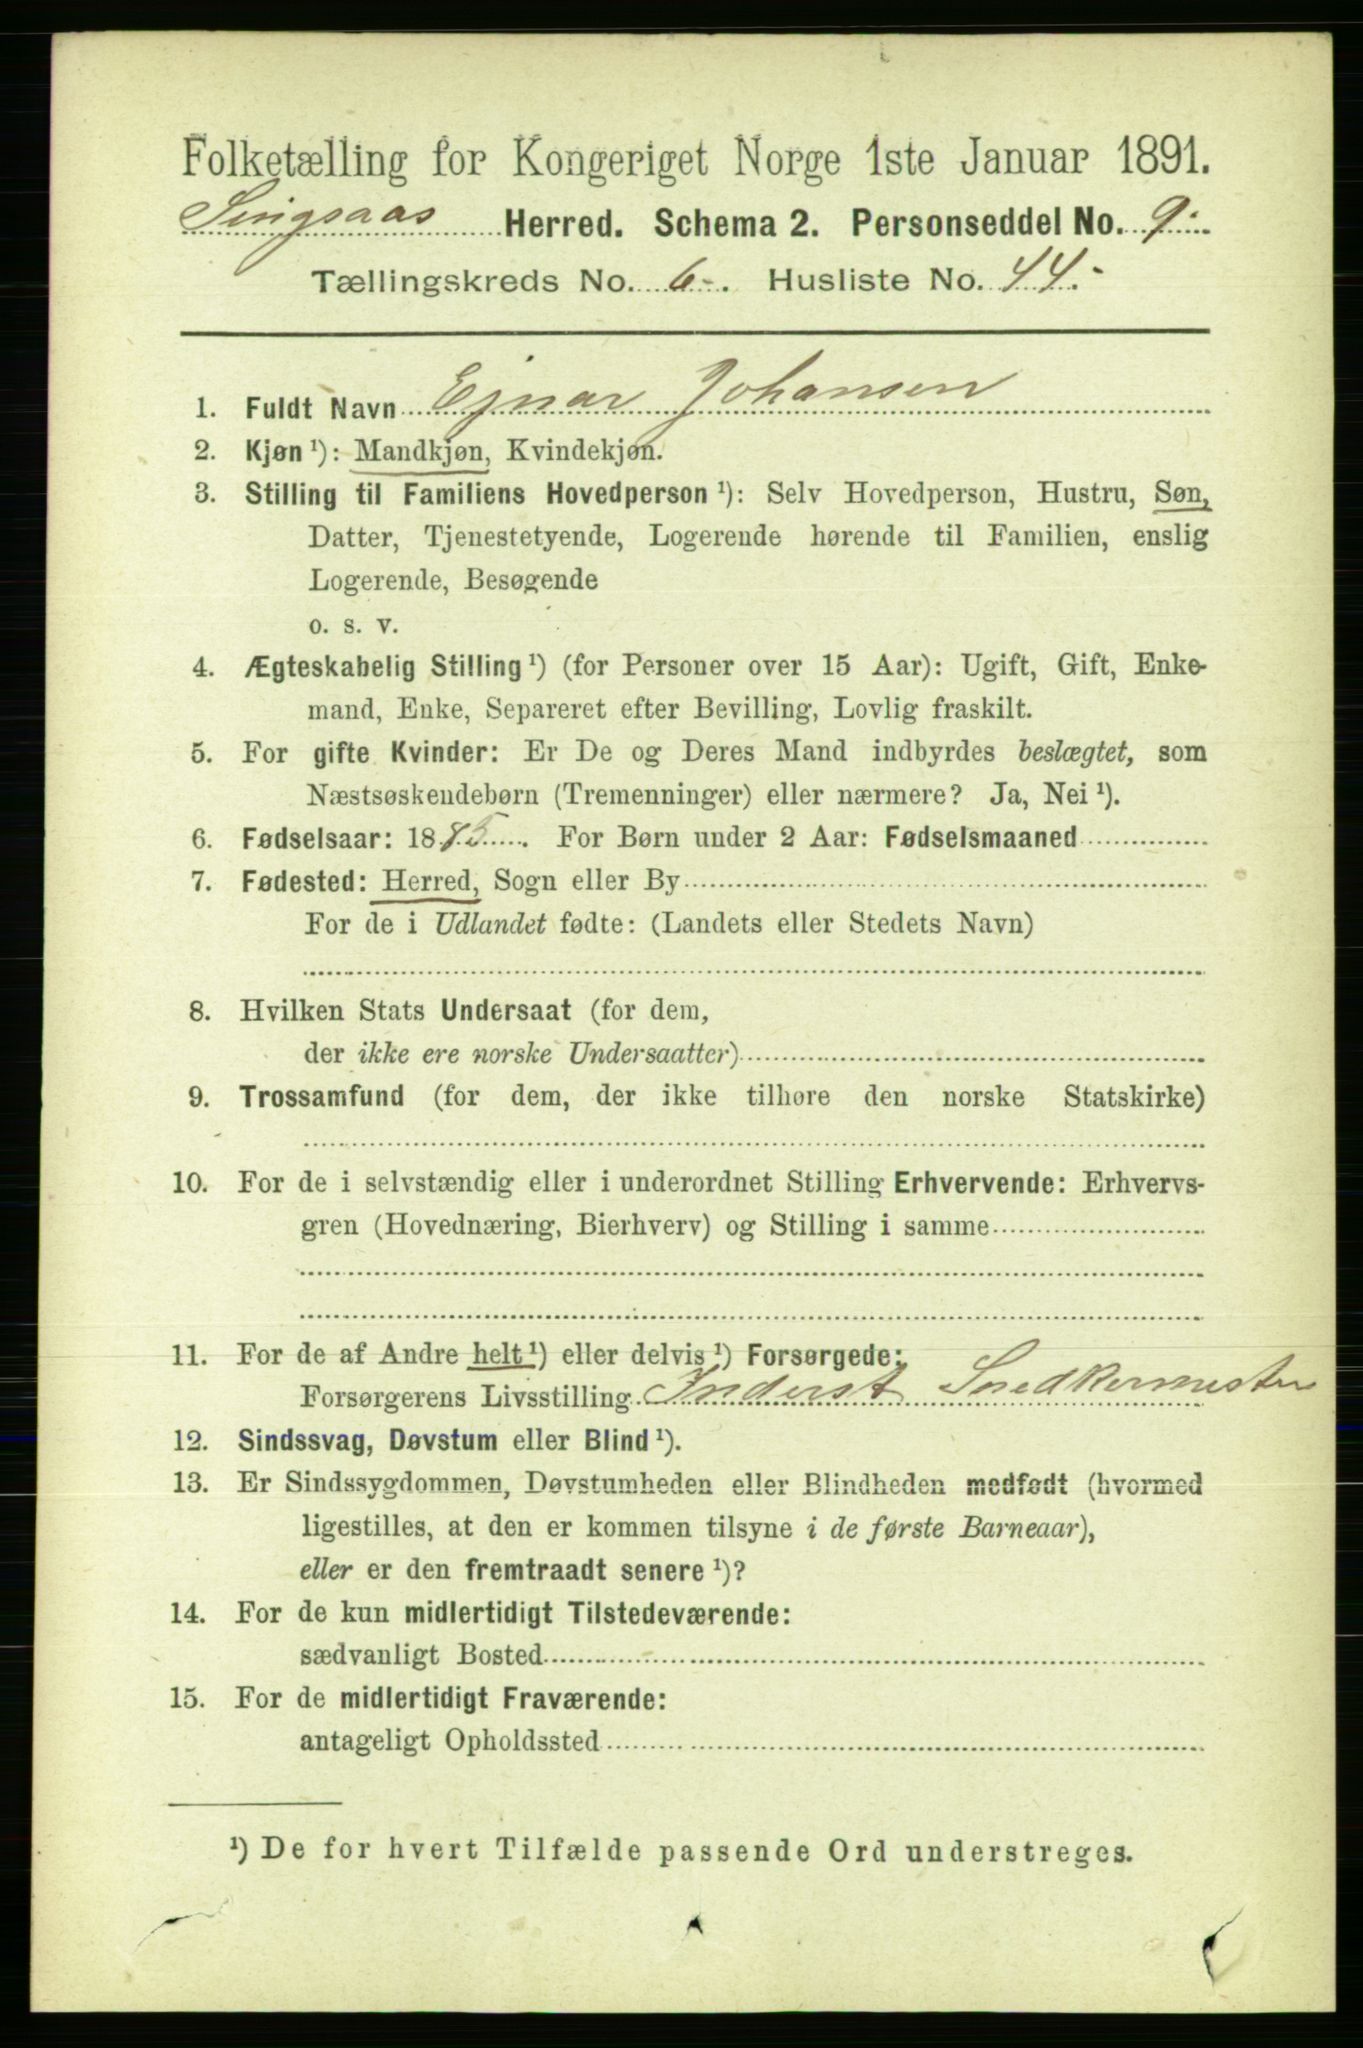 Folketælling for Kongeriget Norge 1ste Januar 1891.
Singsaas Herred. Schema 2. Personseddel No. 9.
Tællingskreds No. 6. Husliste No. 44.
1. Fuldt Navn Ejnar Johansen
2. Kjøn ¹): Mandkjøn, Kvindekjøn.
3. Stilling til Familiens Hovedperson ¹): Selv Hovedperson, Hustru, Søn,
Datter, Tjenestetyende, Logerende hørende til Familien, enslig
Logerende, Besøgende
o. s. v.
4. Ægteskabelig Stilling ¹) (for Personer over 15 Aar): Ugift, Gift, Enke-
mand, Enke, Separeret efter Bevilling, Lovlig fraskilt.
5. For gifte Kvinder: Er De og Deres Mand indbyrdes beslægtet, som
Næstsøskendebørn (Tremenninger) eller nærmere? Ja, Nei ¹).
6. Fødselsaar: 1885. For Børn under 2 Aar: Fødselsmaaned
7. Fødested: Herred, Sogn eller By
For de i Udlandet fødte: (Landets eller Stedets Navn)
8. Hvilken Stats Undersaat (for dem,
der ikke ere norske Undersaatter)
9. Trossamfund (for dem, der ikke tilhøre den norske Statskirke)
10. For de i selvstændig eller i underordnet Stilling Erhvervende: Erhvervs-
gren (Hovednæring, Bierhverv) og Stilling i samme
11. For de af Andre helt ¹) eller delvis ¹) Forsørgede:
Forsørgerens Livsstilling Inderst Snedkermester
12. Sindssvag, Døvstum eller Blind ¹).
13. Er Sindssygdommen, Døvstumheden eller Blindheden medfødt (hvormed
ligestilles, at den er kommen tilsyne i de første Barneaar),
eller er den fremtraadt senere ¹)?
14. For de kun midlertidigt Tilstedeværende:
sædvanligt Bosted
15. For de midlertidigt Fraværende:
antageligt Opholdssted
¹) De for hvert Tilfælde passende Ord understreges.